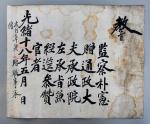 敎
監察朴
贈通政大
夫承政院
左承旨兼
經筵參贊
官者
光緖十八年五月 日